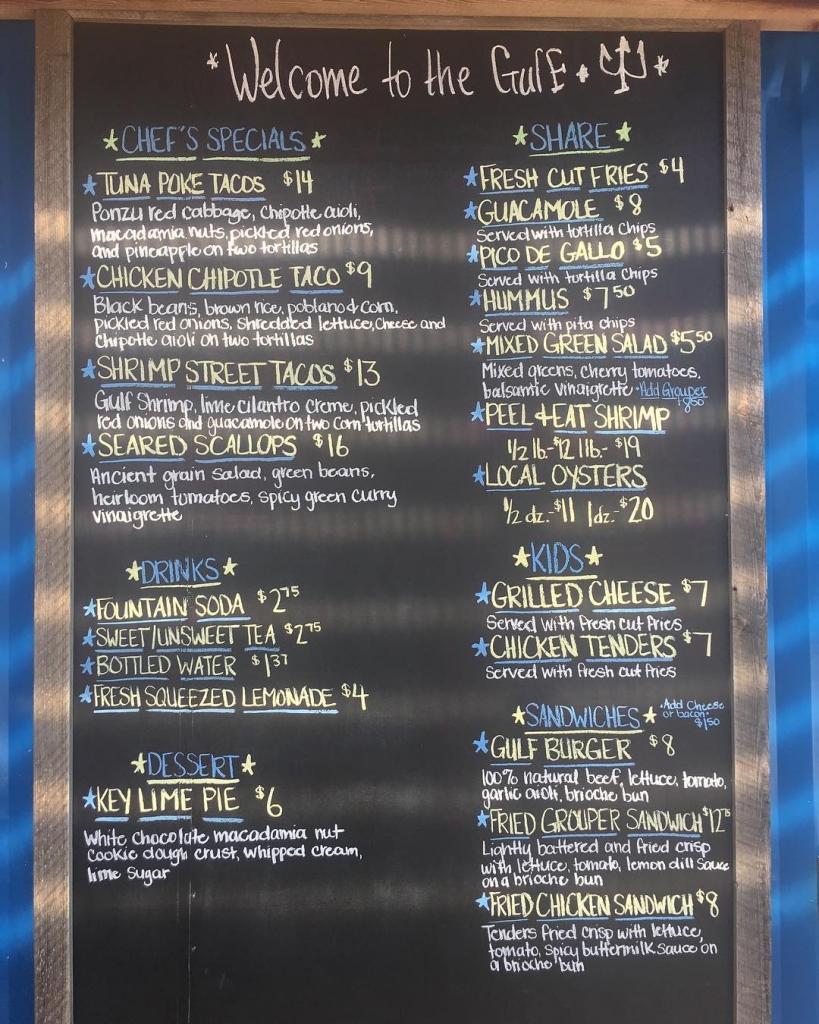 *Welcome to the Gulf.*
CHEF'S SPECIALS
TUNA POKE TACOS $14
Ponzu red cabbage, Chipotle aioli,
macadamia nuts, pickled red onions,
and pineapple on two tortillas
CHICKEN CHIPOTLE TACO $9
Black beans, brown rice, poblano & Corn,
pickled red onions, shredded lettuce, Cheese and
Chipotle aioli on two tortillas
SHRIMP STREET TACOS $13
Gulf Shrimp, lime cilantro creme, pickled
red onions and guacamole on two Corn tortillas
SEARED SCALLOPS $16
Ancient grain salad, green beans,
heirloom tomatoes, spicy green Curry
Vinaigrette
DRINKS
FOUNTAIN SODA $2.75
SWEET/UNSWEET TEA $2.75
BOTTLED WATER $1.37
FRESH SQUEEZED LEMONADE $4
DESSERT
KEY LIME PIE $6
White chocolate macadamia nut
Cookie dough crust, whipped cream,
lime sugar
SHARE
FRESH CUT FRIES $4
GUACAMOLE $8
Served with tortilla chips
PICO DE GALLO $5
Served with tortilla Chips
HUMMUS $7.50
Served with pita chips
MIXED GREEN SALAD $5.50
Mixed greens, cherry tomatoes,
balsamic vinaigrette • Add Grouper
+8.50
PEEL & EAT SHRIMP
1/2 lb.-$12 1lb.- $19
LOCAL OYSTERS
1/2 dz.-$11 1dz.-$20
KIDS
GRILLED CHEESE $7
Served with Fresh cut fries
CHICKEN TENDERS $7
Served with fresh cut fries
SANDWICHES
•Add Cheese
or bacon•
$1.50
GULF BURGER $8
100% natural beef, lettuce, tomato,
garlic aioli, brioche bun
FRIED GROUPER SANDWICH $12.75
Lightly battered and fried crisp
with lettuce, tomato, lemon dill Sauce
on a brioche bun
FRIED CHICKEN SANDWICH $8
Tenders fried crisp with lettuce,
tomato, spicy buttermilk sauce on
a brioche bun